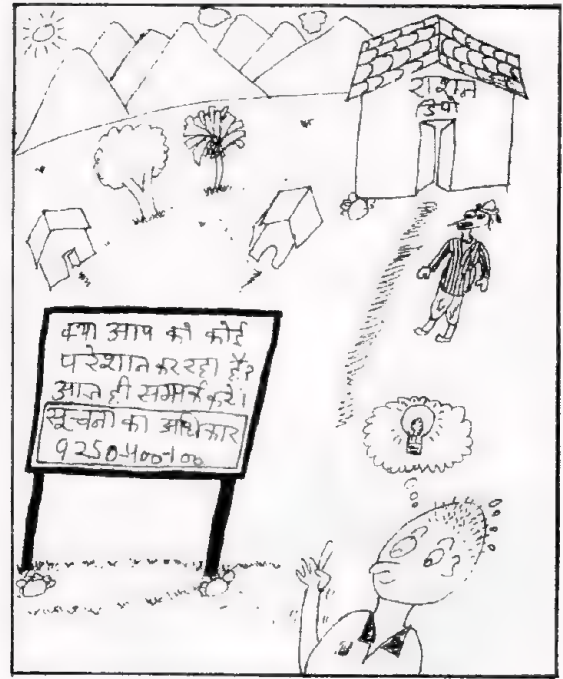 राशन
डिपो
क्या आप को कोई
परेशान कर रहा है?
आज ही सम्पर्क करे।
सूचना का अधिकार
9250-400-100